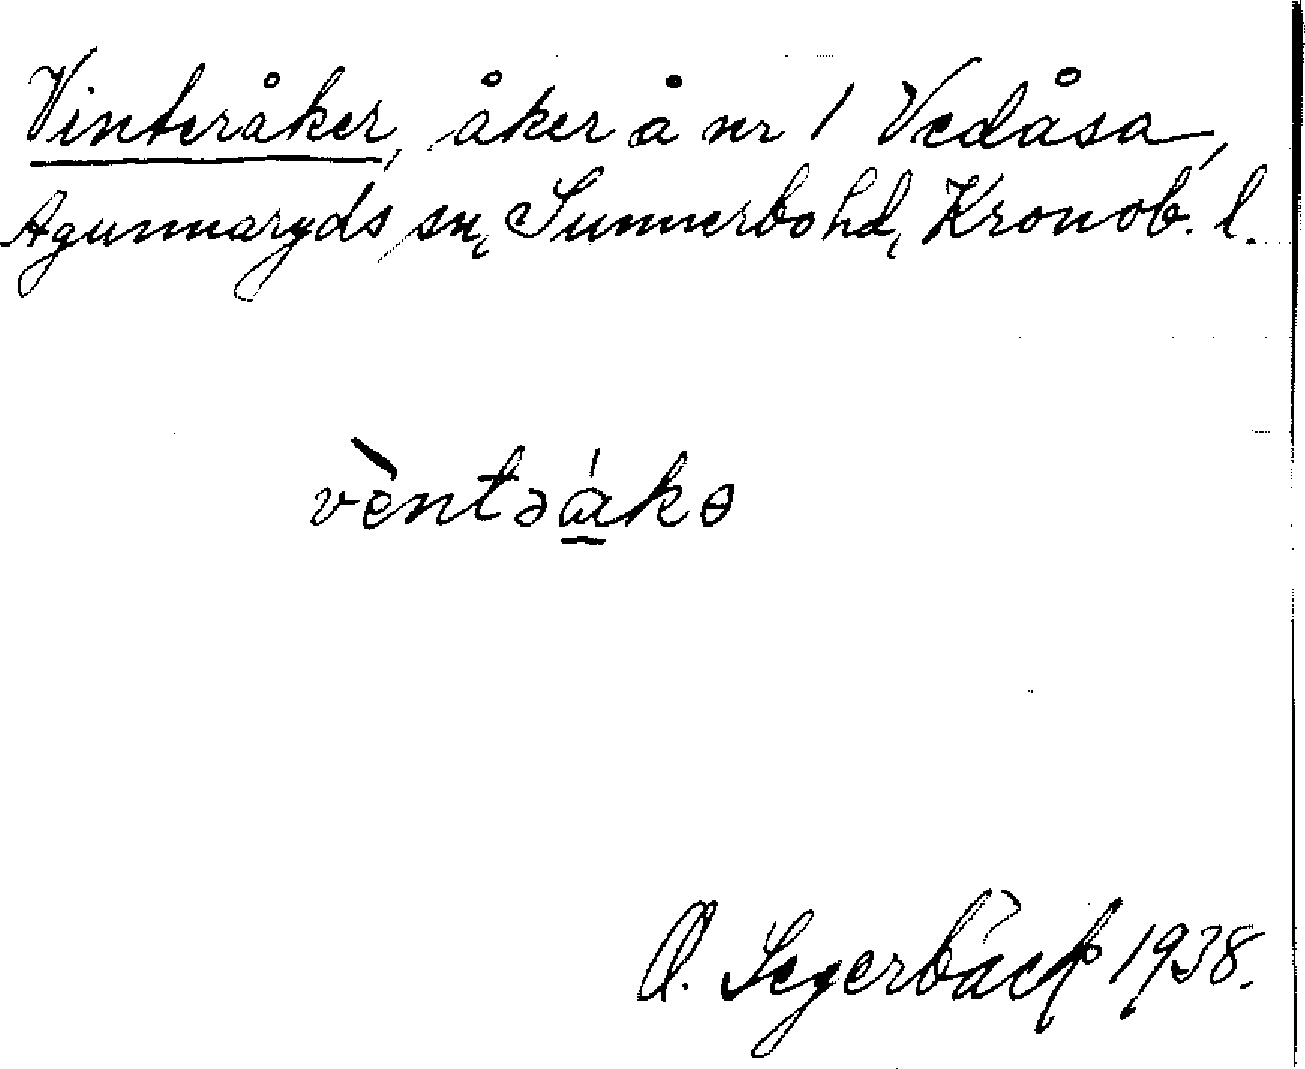 Vinteråker, åker å nr 1 Vedåsa,
Agunnaryds sn, Sunnerbo hd, Kronob. l.
vèntəákə
O. Segerbäck 1938.